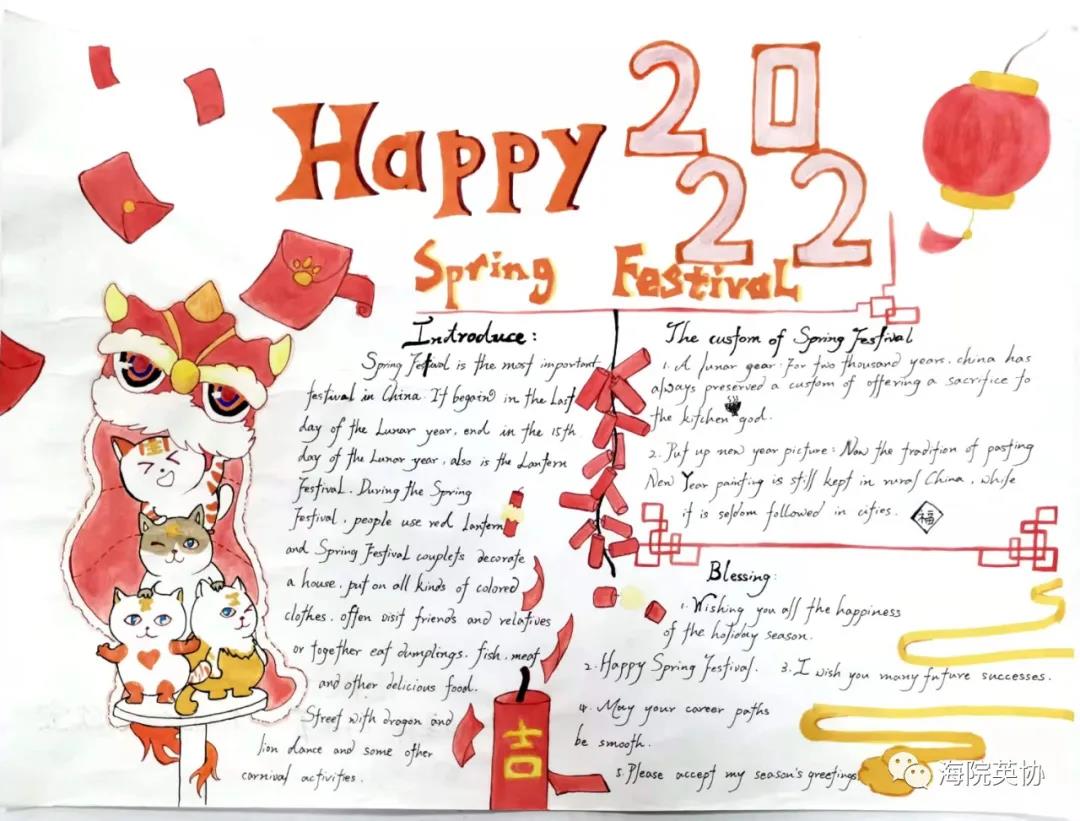 Happy 2022
Spring Festival
Introduce:
Spring Festival is the most important
festival in China. It begain in the Last
day of the Lunar year, end in the 15th
day of the Lunar year, also is the Lantern
Festival. During the Spring
Festival, people use red Lantern
and Spring Festival couplets decorate
a house, put on all kinds of colored
clothes, often visit friends and relatives
or together eat dumplings, fish, meat
and other delicious food.
Street with dragon and
lion dance and some other
carnival activities.
The custom of Spring Festival
1. A lunar year: For two thousand years, china has
always preserved a custom of offering a sacrifice to
the kitchen god.
2. Put up new year picture: Now the tradition of pasting
New Year painting is still kept in rural China, while
it is seldom followed in cities.
福
Blessing:
1. Wishing you all the happiness
of the holiday season.
2. Happy Spring Festival. 3. I wish you many future successes.
4. May your career paths
be smooth.
5. Please accept my season's greetings.
吉
海院英协